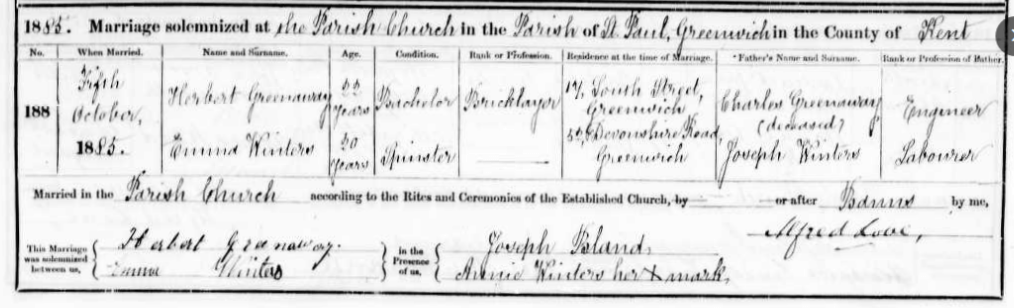 1885. Marriage solemnized at the Parish Church in the Parish of St Paul, Greenwich in the County of Kent
No. When Married. Name and Surname. Age. Condition. Rank or Profession. Residence at the time of Marriage. Father's Name and Surname. Rank or Profession of Father.
188
Fifth October, 1885.
Herbert Greenaway 22 Years Bachelor Bricklayer 17, South Street, Greenwich Charles Greenaway, (deceased) Engineer
Emma Winters 20 Years Spinster Devonshire Road, Greenwich Joseph Winters Labourer
Married in the Parish Church according to the Rites and Ceremonies of the Established Church, by or after Banns by me,
Alfred Love,
This Marriage was solemnized between us,
Herbert Greenaway.
Emma Winters
in the Presence of us,
Joseph Bland,
Annie Winters her X mark,